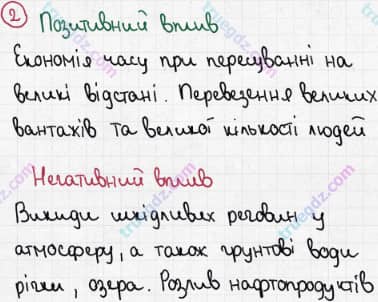 2 Позитивний вплив
Економія часу при пересуванні на
великі відстані. Перевезення великих
вантажів та великої кількості людей
Негативний вплив
Викиди шкідливих речовин у
атмосферу, а також грунтові води
річки, озера. Розлив нафтопродуктів